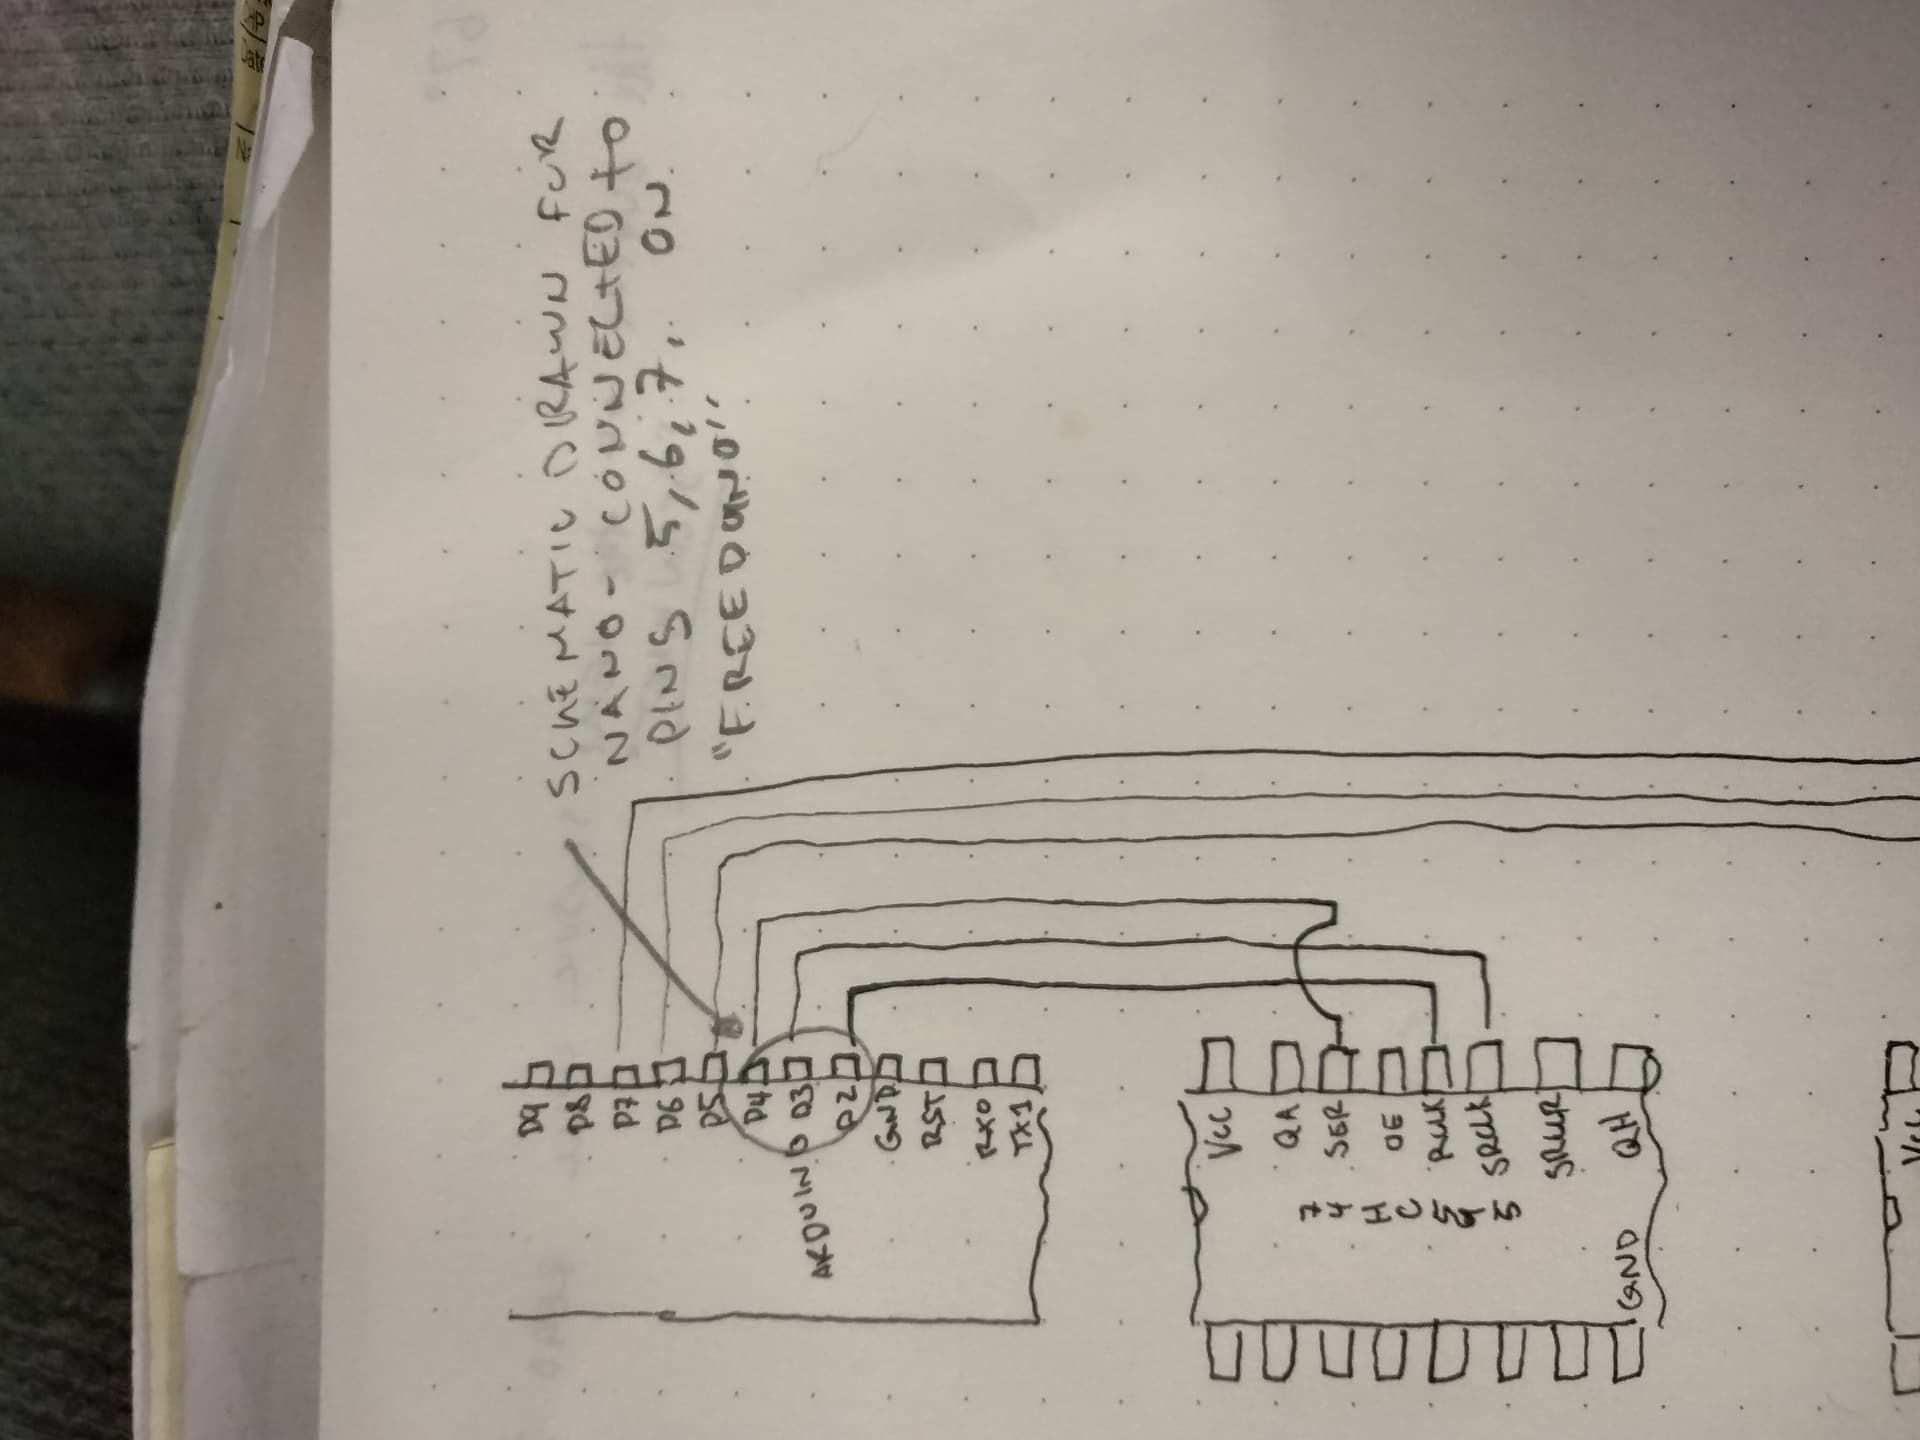 SCHEMATIC DRAWN FOR
NANO - CONNECTED to
PINS 5,6,7, ON
"FREEDUNO",
D9
D8
D7
D6
D5
D4
D3
D2
GND
RST
RX0
TX1
ARDUINO
VCC
QA
SER
OE
RCLK
SRCLK
SRCLR
QH
74HC595
GND
VCC
Date